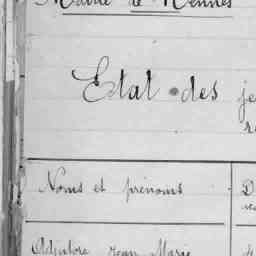 Mairie de Rennes
Etat des je
Noms et prénoms
D
Jean Marie